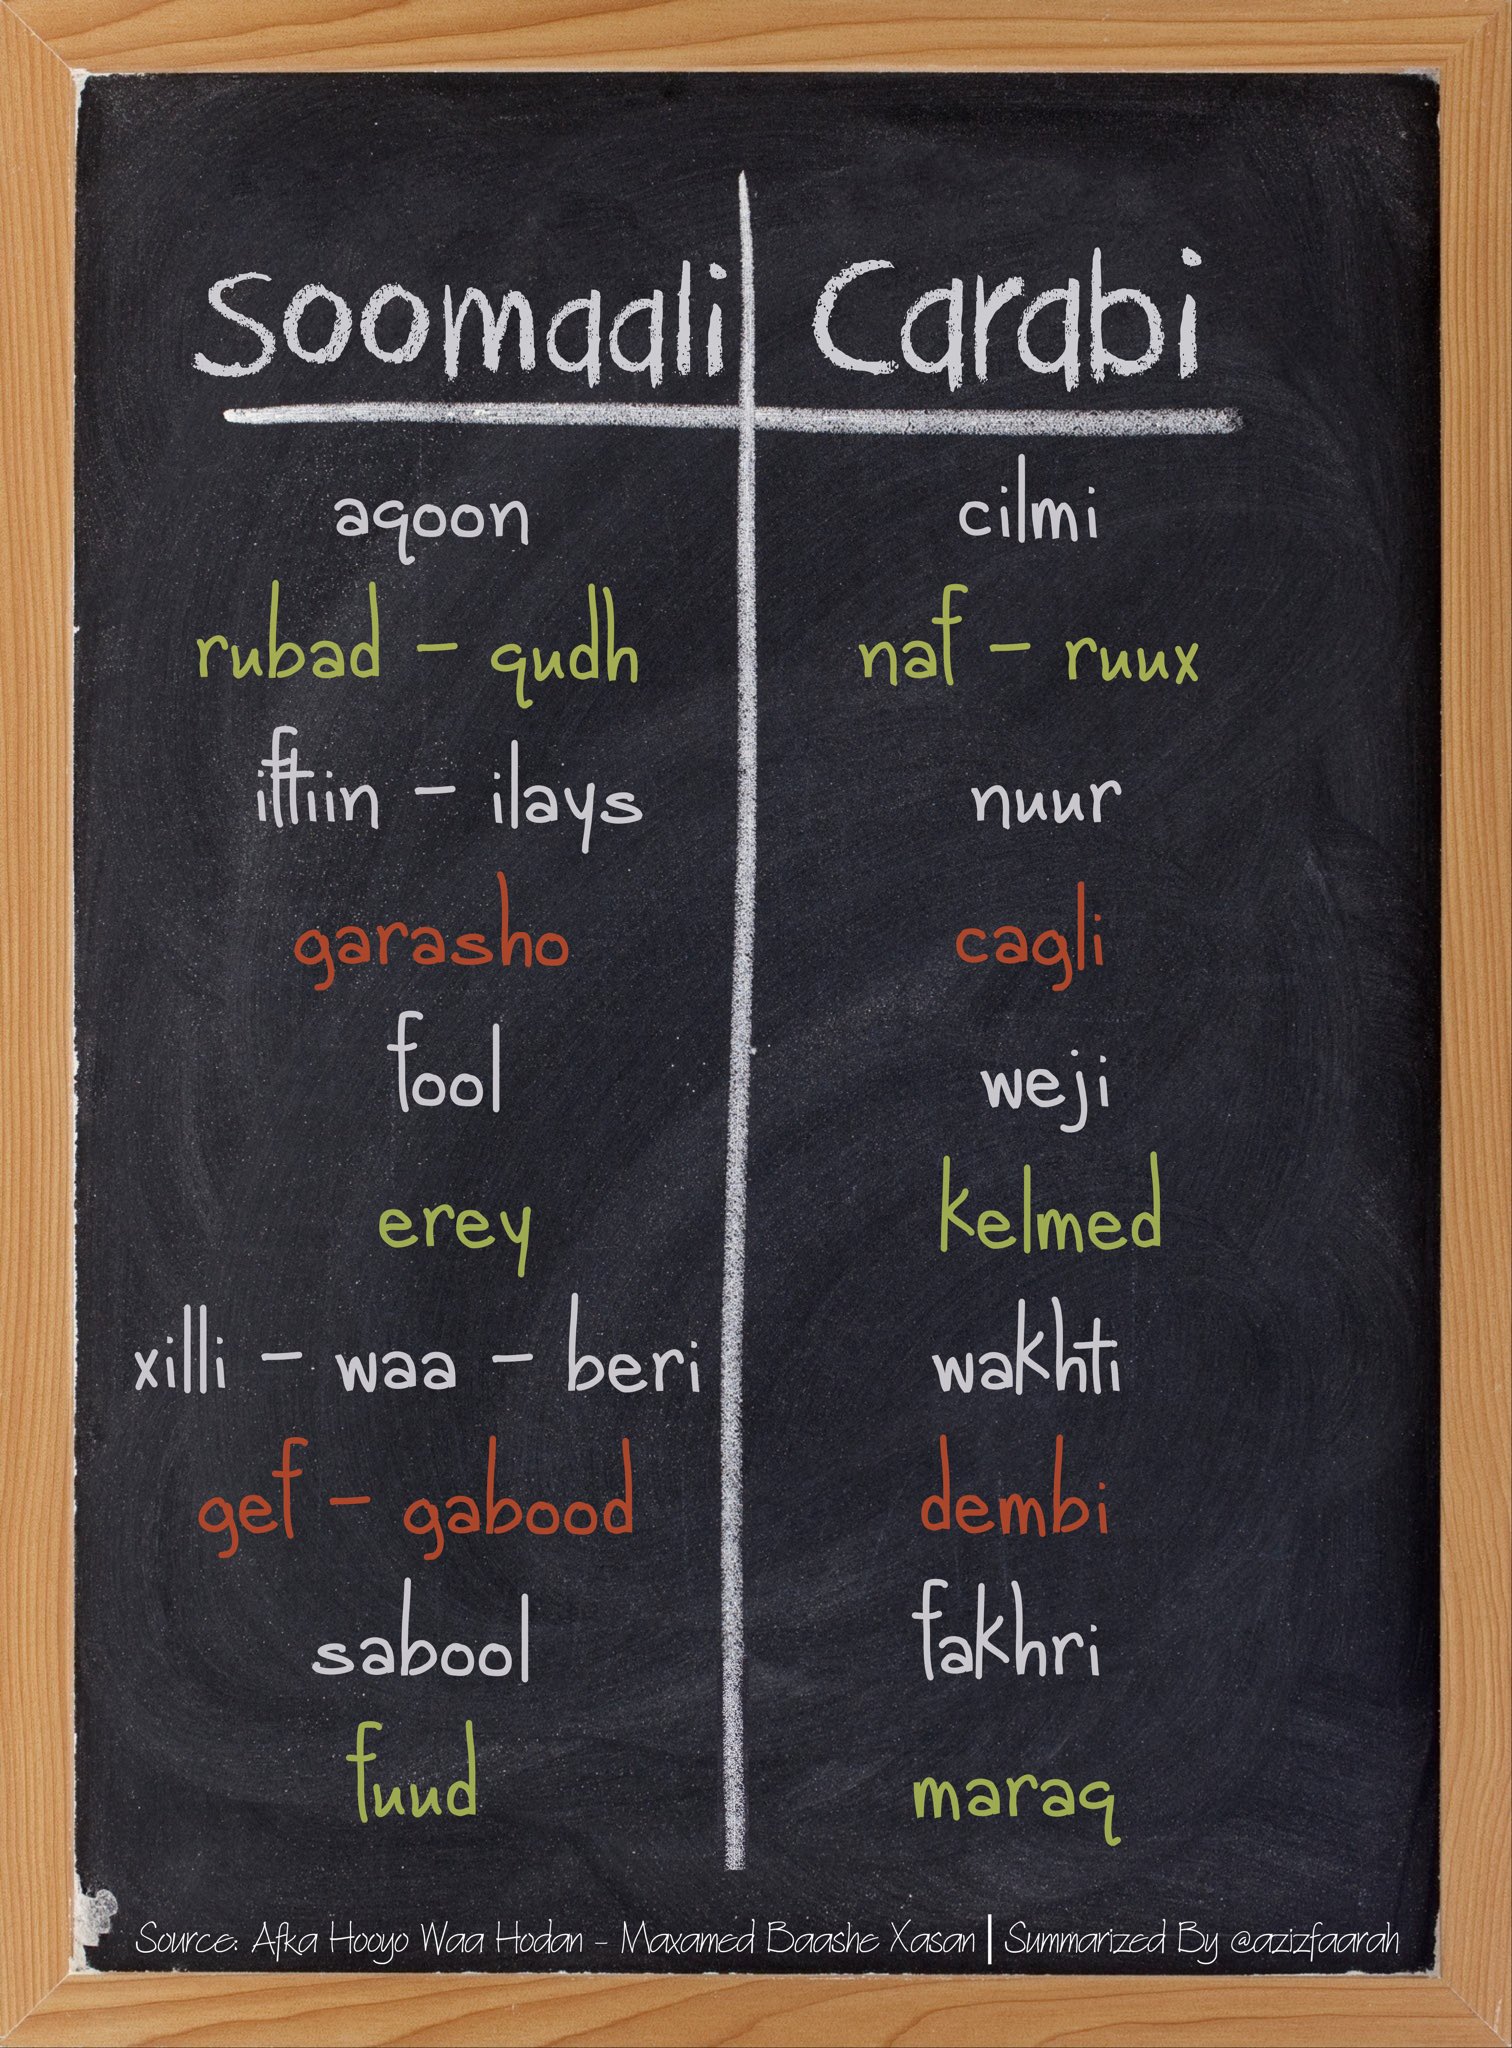 Soomaali Carabi
aqoon cilmi
rubad - qudh naf - ruux
iftiin - ilays nuur
garasho cagli
fool weji
erey kelmed
xilli - waa - beri wakhti
gef - gabood dembi
sabool fakhri
fuud maraq
Source: Afka Hooyo Waa Hodan - Maxamed Baashe Xasan | Summarized By @azizfaarah